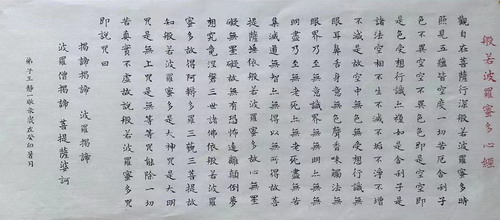 般若波羅蜜多心經
觀自在菩薩行深般若波羅蜜多時
照見五蘊皆空度一切苦厄舍利子
色不異空空不異色色即是空空即
是色受想行識亦復如是舍利子是
諸法空相不生不滅不垢不淨不增
不減是故空中無色無受想行識無
眼耳鼻舌身意無色聲香味觸法無
眼界乃至無意識界無無明亦無無
明盡乃至無老死亦無老死盡無苦
集滅道無智亦無得以無所得故菩
提薩埵依般若波羅蜜多故心無罣
礙無罣礙故無有恐怖遠離顛倒夢
想究竟涅槃三世諸佛依般若波羅
蜜多故得阿耨多羅三藐三菩提故
知般若波羅蜜多是大神咒是大明
咒是無上咒是無等等咒能除一切
苦真實不虛故說般若波羅蜜多咒
即說咒曰
揭諦揭諦 波羅揭諦
波羅僧揭諦 菩提薩婆訶
弟子王靜一敬 歲在癸卯暑月